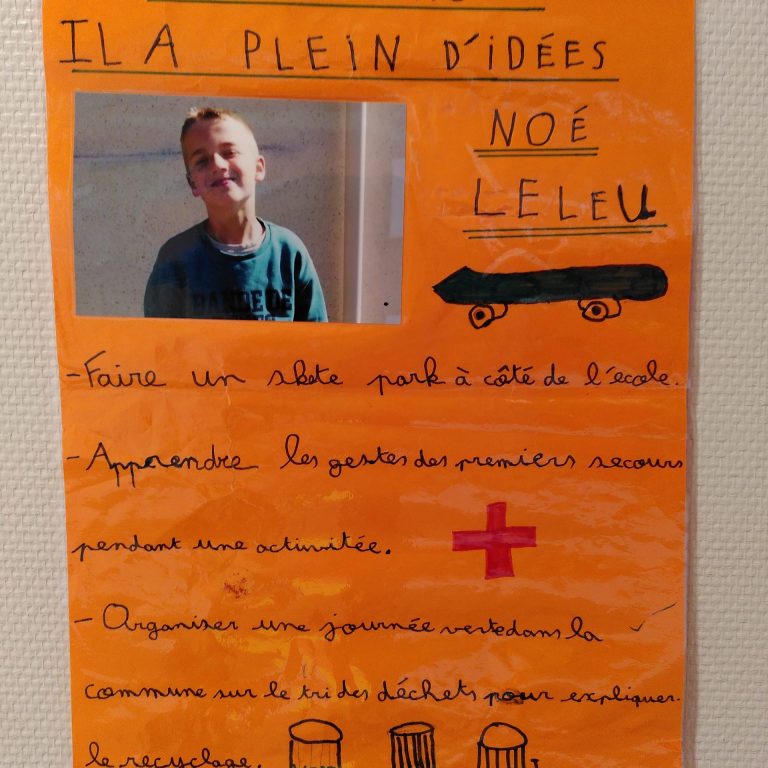 IL A PLEIN D'IDÉES
NOÉ
LELEU
BANDE DE
-Faire un skate park à côté de l'école.
-Apprendre les gestes des premiers secours
pendant une activitée.
- Organiser une journée verte dans la
commune sur le tri des déchets pour expliquer
le recyclage.